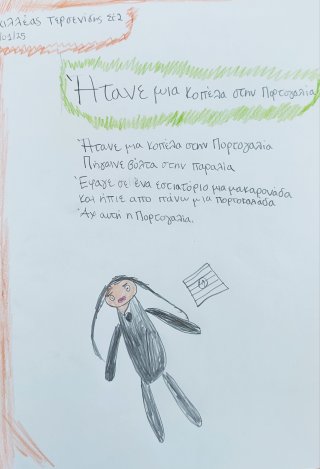 Τερζενίδης Στ2
/01/25
Ήτανε μια κοπέλα στην Πορτογαλία
Ήτανε μια κοπέλα στην Πορτογαλία
Πήγαινε βόλτα στην παραλία
Έφαγε σε ένα εστιατόριο μια μακαρονάδα
και ήπιε από πάνω μια πορτοκαλάδα
Αχ αυτή η Πορτογαλία.